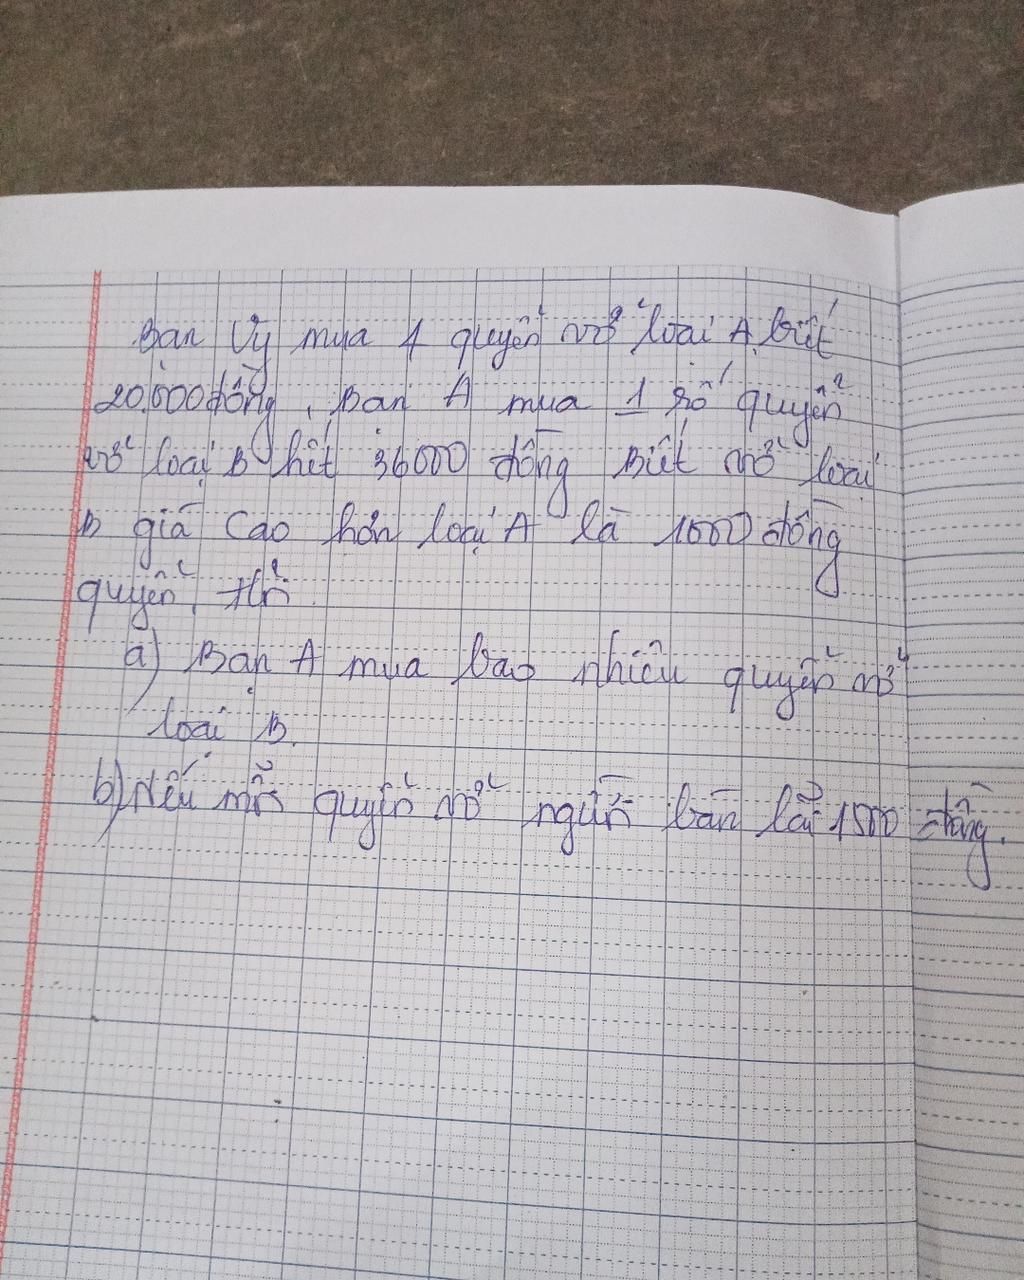 Bạn Vỹ mua 4 quyển vở loại A biết
20.000 đồng, Bạn A mua 1 số quyển
vở loại B hết 36000 đồng Biết vở loại
B giá cao hơn loại A là 1000 đồng
quyển, thì
a) Bạn A mua bao nhiêu quyển vở
loại B.
b) Nếu mỗi quyển vở người bán lãi 1500 đồng.